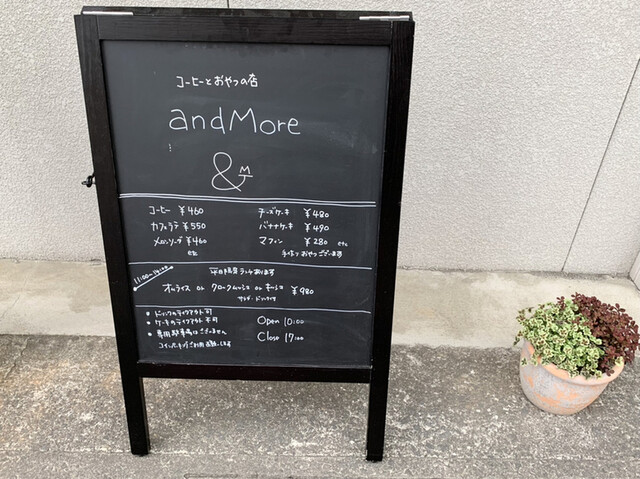 コーヒーとおやつの店
andMore
&
コーヒー ¥460
カフェラテ ¥550
メロンソーダ ¥460
etc
チーズケーキ ¥480
バナナケーキ ¥490
マフィン ¥280 etc
手作りおやつございます
11:00〜14:00
平日限定ランチあります
オムライス or クロックムッシュ or キーシュ ¥980
サラダ・ドリンク付
• ドリンクのテイクアウト可
• ケーキのテイクアウト不可
• 専用駐車場はございません
コインパーキングご利用お願いします
Open 10:00
Close 17:00